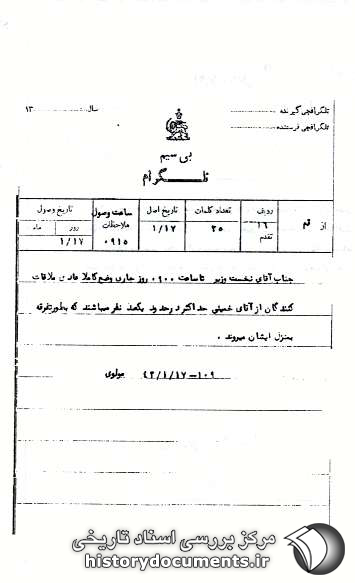 تلگرافچی گیرنده
سال ۱۳
تلگرافچی فرستنده
بی سیم
تلگرام
از قم
ردیف
۱۶
تقدم
تعداد کلمات
۲۵
تاریخ اصل
۱/۱۷
ساعت وصول
ملاحظات
۰۹۱۵
تاریخ وصول
روز ماه
۱/۱۷
جناب آقای نخست وزیر تا ساعت ۰۹۰۰ روز جاری وضع کاملا عادی ملاقات
کنندگان از آقای خمینی حداکثر در حدود یکصد نفر میباشند که بطور متفرقه
بمنزل ایشان میروند .
۱۰۹-۴۳/۱/۱۷ مولوی
مرکز بررسی اسناد تاریخی
historydocuments.ir